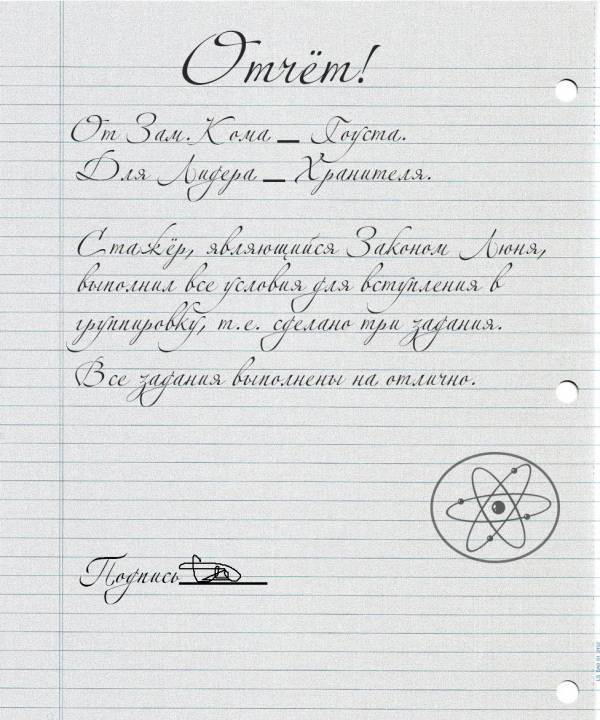 Отчёт!
От Зам. Кома _ Гоуста.
Для Лидера _ Хранителя.
Стажёр, являющийся Законом Люня,
выполнил все условия для вступления в
группировку, т.е. сделано три задания.
Все задания выполнены на отлично.
Подпись